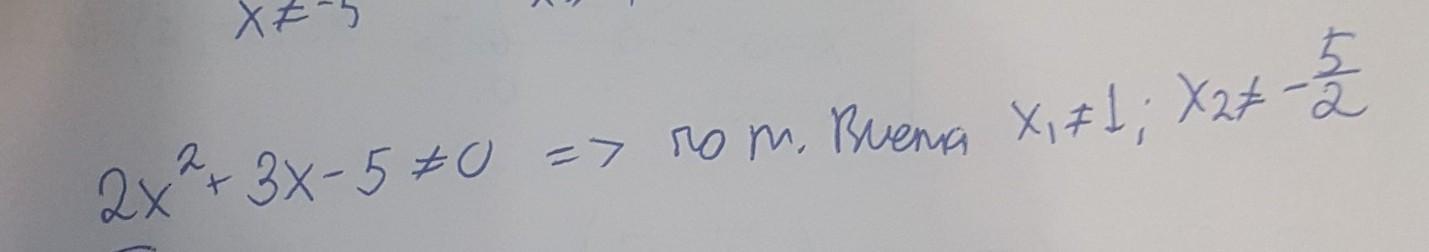 x ≠ -5
2x² + 3x - 5 ≠ 0 => по т. Виета x₁ ≠ 1; x₂ ≠ -5/2